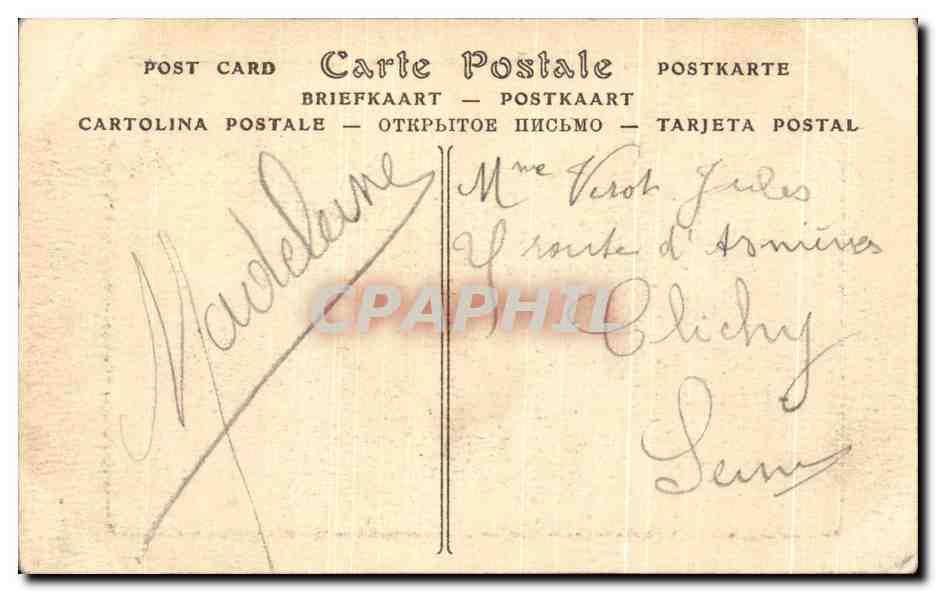 POST CARD Carte Postale POSTKARTE
BRIEFKAART — POSTKAART
CARTOLINA POSTALE — ОТКРЫТОЕ ПИСЬМО — TARJETA POSTAL
Madeleine
Mme Virot Jules
route d'Asnières
Clichy
Seine
CPAPHIL